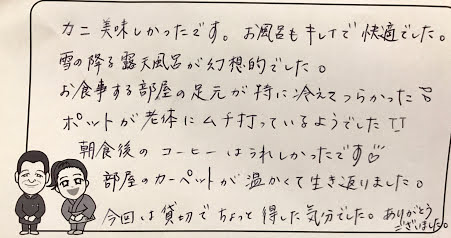 カニ美味しかったです。お風呂もキレイで快適でした。
雪の降る露天風呂が幻想的でした。
お食事する部屋の足元が特に冷えてつらかった
ポットが老体にムチ打っているようでした
朝食後のコーヒーはうれしかったです
部屋のカーペットが温かくて生き返りました。
今回は貸切でちょっと得した気分でした。ありがとう
ございました。